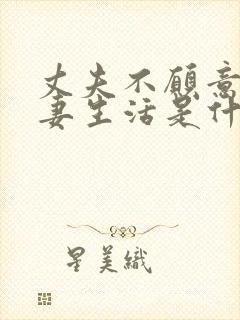 丈夫不愿意
妻生活是什
星美織